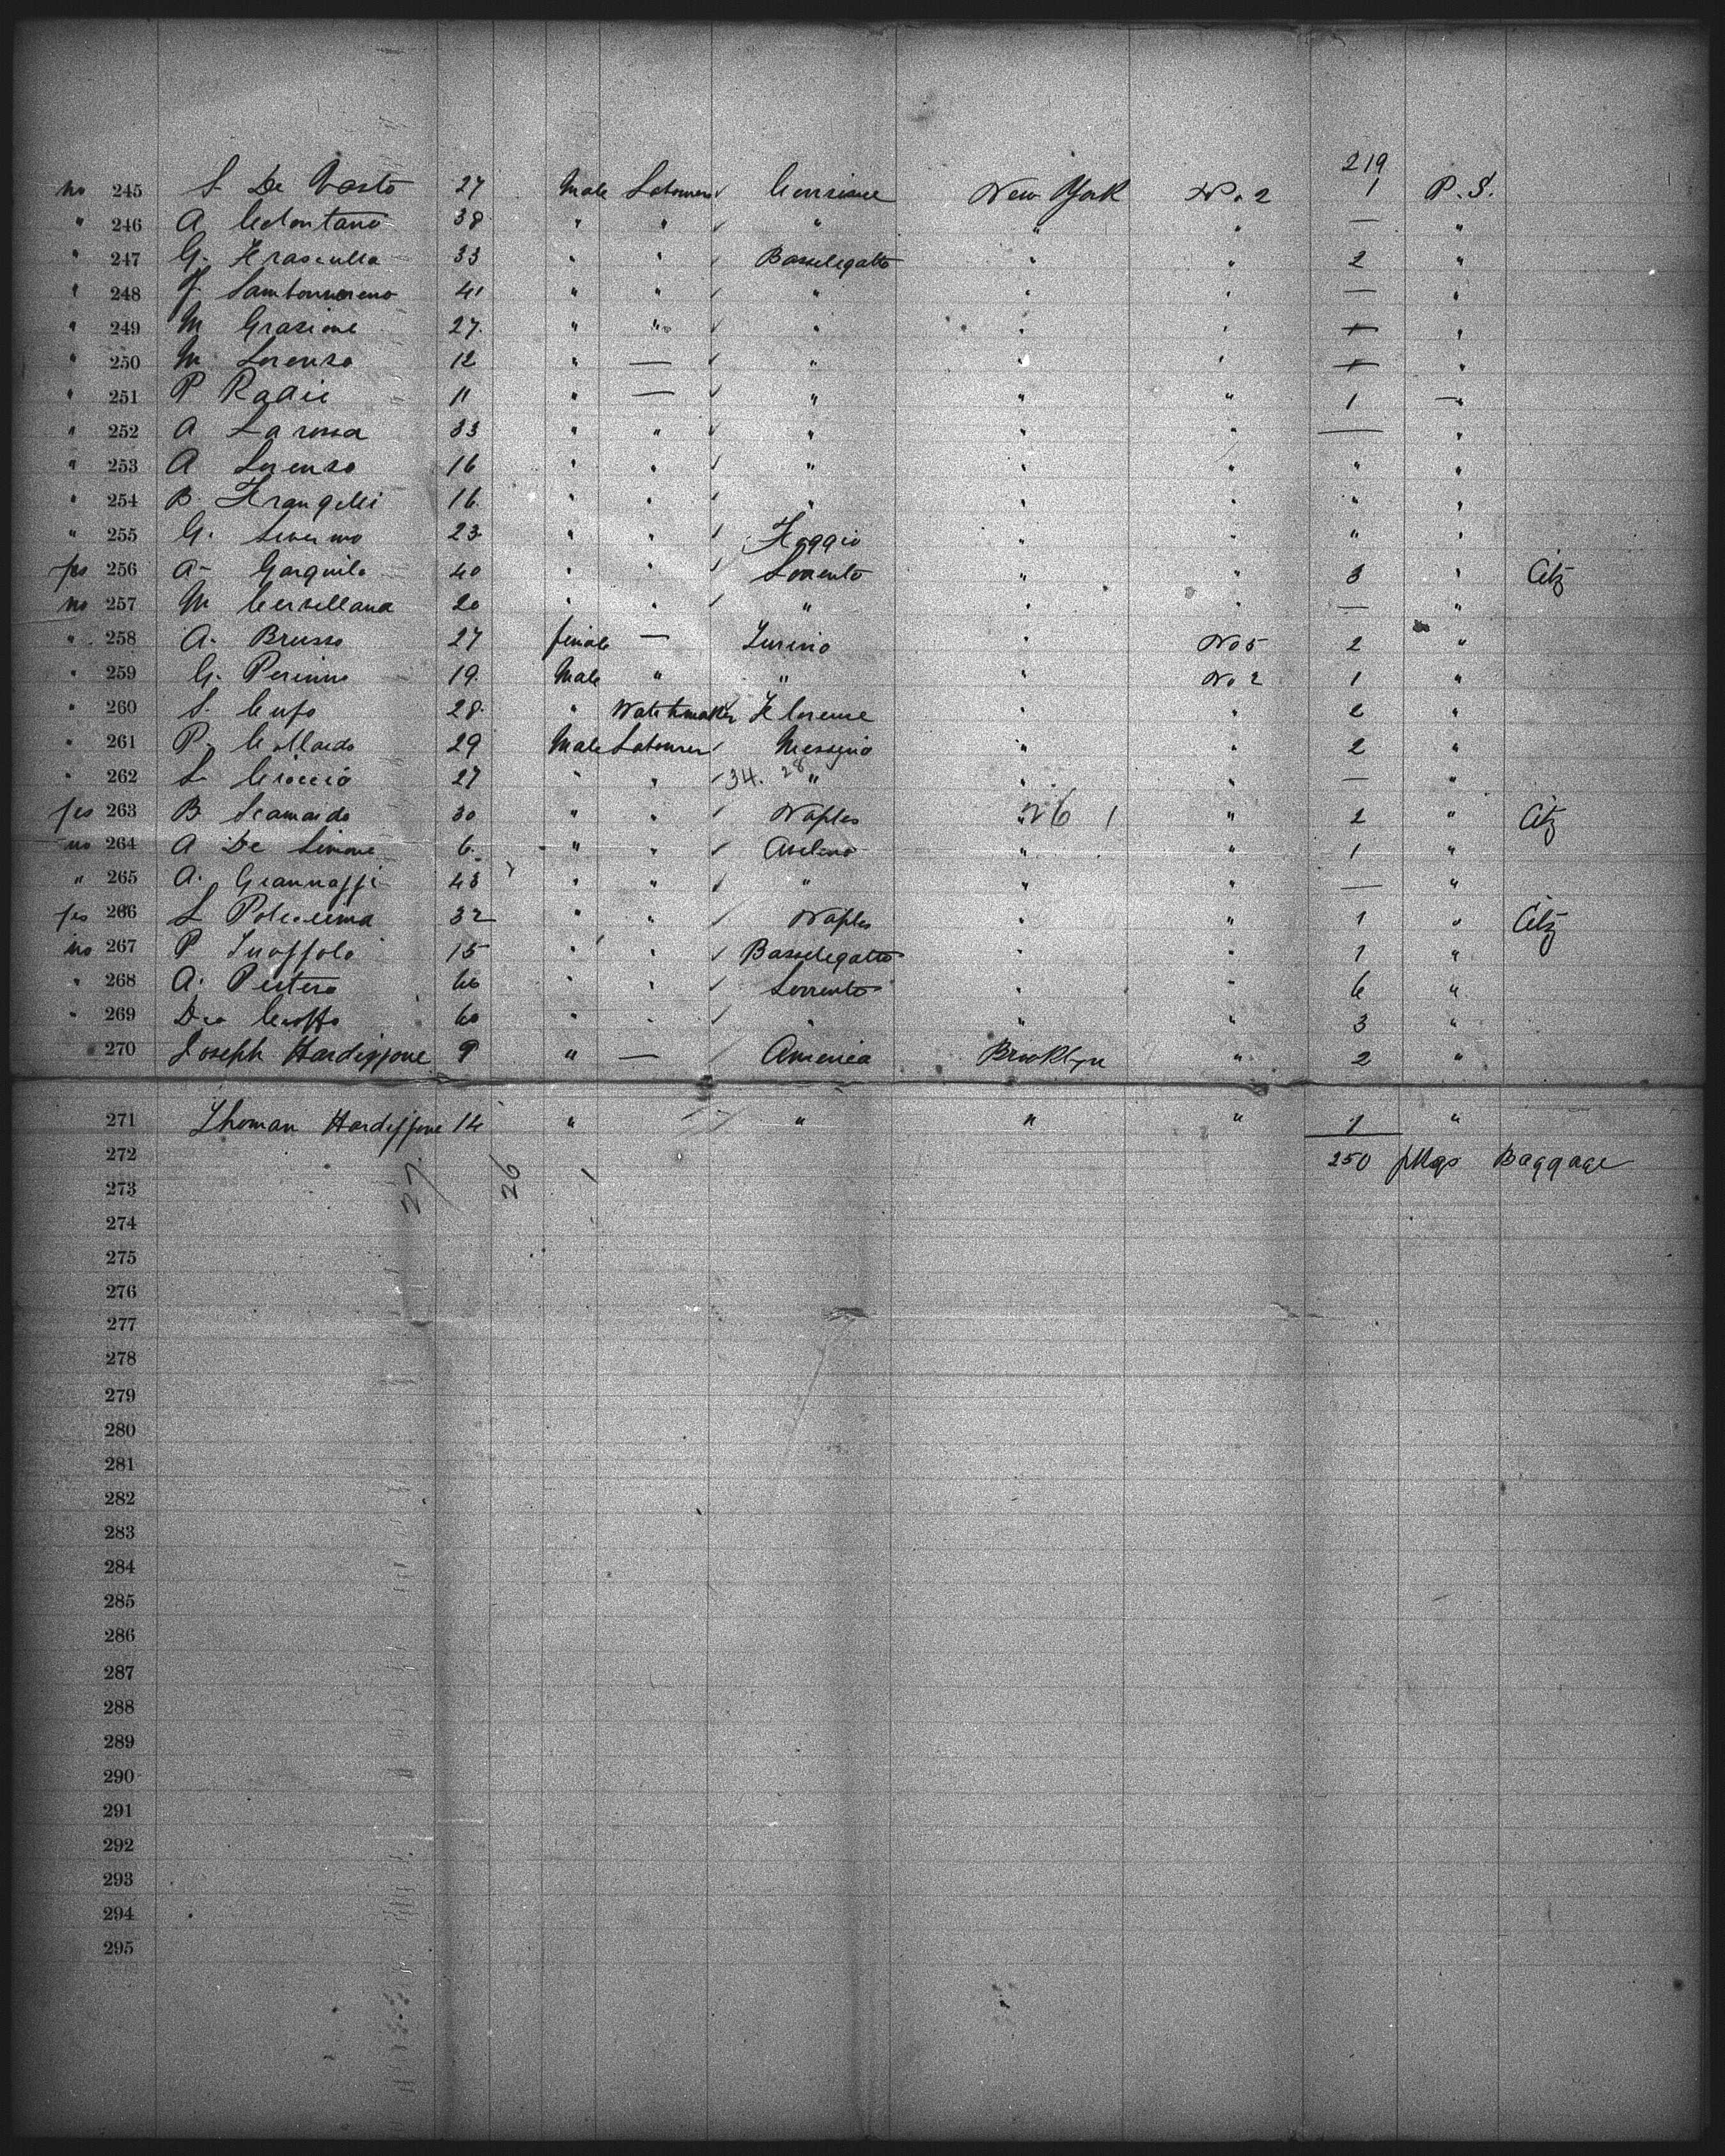 219
no 245 S. De Vasto 27 Male Labourer New York No. 2 1 P. S.
" 246 A 38 " " " " " — "
" 247 G. Frascella 33 " " Basselegatto " " 2 "
" 248 41 " " " " " — "
" 249 M Grasione 27 " " " " " "
" 250 M Lorenzo 12 " — " " " "
" 251 P Radic 11 " — " " " 1 "
" 252 A La rossa 33 " " " " " — "
" 253 A Lorenzo 16 " " " " " " "
" 254 B. Frangelli 16 " " " " " " "
" 255 G. Severino 23 " " Foggio " " " "
yes 256 A Garquilo 40 " " Sorrento " " 3 " Citz
no 257 M 20 " " " " " — "
" 258 A. Brusso 27 female — Turino " No 5 2 "
" 259 G. Perinno 19 Male " " " No 2 1 "
" 260 S. Cufo 28 " Watchmaker Florence " " 2 "
" 261 P. Collardo 29 Male Labourer Messina " " 2 "
" 262 27 " " 34. 28 " " " — "
yes 263 B Scamardo 30 " " Naples 26 1 " 2 " Citz
no 264 A De Simone 6 " " Avelino " " 1 "
" 265 A. 43 " " " " " — "
yes 266 L 32 " " Naples " " 1 " Citz
no 267 P 15 " " Basselegatto " " 1 "
" 268 A. 66 " " Sorrento " " 6 "
" 269 60 " " " " " 3 "
" 270 Joseph Hardissone 9 " — America Brooklyn " 2 "
271 Thoman Hardissone 14 " " " " 1 "
272 250 pkgs Baggage
27 26 1
273
274
275
276
277
278
279
280
281
282
283
284
285
286
287
288
289
290
291
292
293
294
295